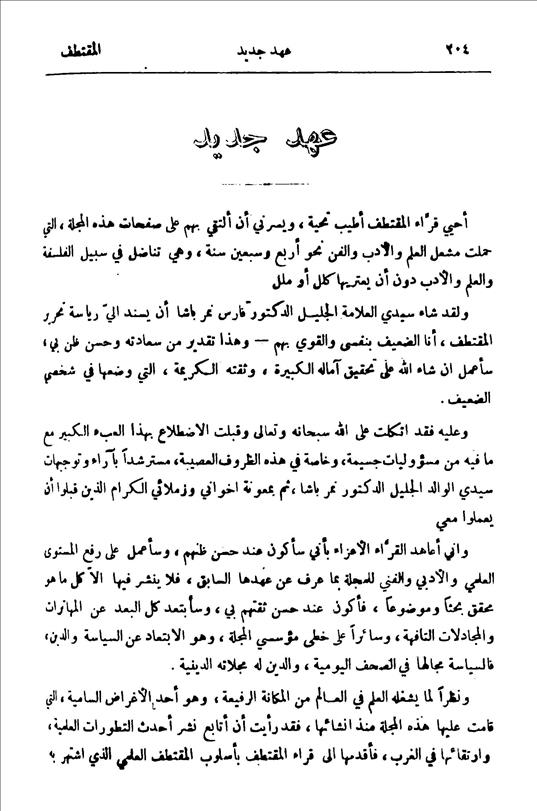 ٢٠٤ عهد جديد المقتطف
عهد جديد
أحيي قرَّاء المقتطف أطيب تحية ، ويسرني أن ألتقي بهم على صفحات هذه المجلة ، التي
حملت مشعل العلم والأدب والفن نحو أربع وسبعين سنة ، وهي تناضل في سبيل الفلسفة
والعلم والأدب دون أن يعتريها كلل أو ملل
ولقد شاء سيدي العلامة الجليل الدكتور فارس نمر باشا أن يسند اليَّ رياسة تحرير
المقتطف ، أنا الضعيف بنفسي والقوي بهم — وهذا تقدير من سعادته وحسن ظن بي ،
سأعمل ان شاء الله على تحقيق آماله الكبيرة ، وثقته الكريمة ، التي وضعها في شخصي
الضعيف .
وعليه فقد اتكلت على الله سبحانه وتعالى وقبلت الاضطلاع بهذا العبء الكبير مع
ما فيه من مسؤوليات جسيمة ، وخاصة في هذه الظروف العصيبة ، مسترشداً بآراء وتوجيهات
سيدي الوالد الجليل الدكتور نمر باشا ، ثم بمعونة اخواني وزملائي الكرام الذين قبلوا أن
يعملوا معي
واني أعاهد القرَّاء الأعزاء بأني سأكون عند حسن ظنهم ، وسأعمل على رفع المستوى
العلمي والأدبي والفني للمجلة بما عرف عن عهدها السابق ، فلا ينشر فيها الاَّ كل ما هو
محقق بحثاً وموضوعاً ، فأكون عند حسن ثقتهم بي ، وسأبتعد كل البعد عن المهاترات
والمجادلات التافهة ، وسائراً على خطى مؤسسي المجلة ، وهو الابتعاد عن السياسة والدين ،
فالسياسة مجالها في الصحف اليومية ، والدين له مجلاته الدينية .
ونظراً لما يشغله العلم في العالم من المكانة الرفيعة ، وهو أحد الأغراض السامية ، التي
قامت عليها هذه المجلة منذ انشائها ، فقد رأيت أن أتابع نشر أحدث التطورات العلمية ،
وارتقائها في الغرب ، فأقدمها الى قراء المقتطف بأسلوب المقتطف العلمي الذي اشتهر به